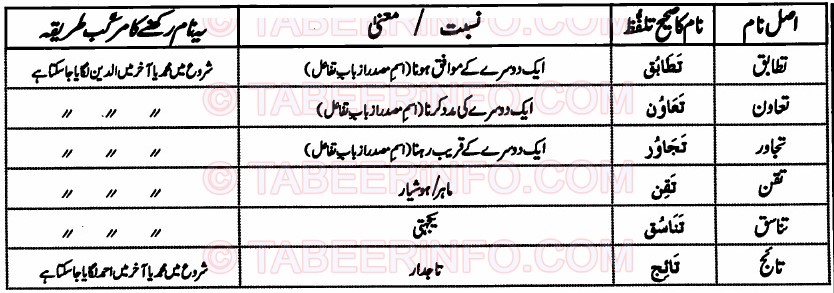 اصل نام	نام کا صحیح تلفّظ	نسبت / معنیٰ	یہ نام رکھنے کا مرکب طریقہ
تطابق	تَطَابُق	ایک دوسرے کے موافق ہونا (اسمِ مصدر از باب تفاعل)	شروع میں محمد یا آخر میں الدین لگایا جا سکتا ہے
تعاون	تَعَاوُن	ایک دوسرے کی مدد کرنا (اسمِ مصدر از باب تفاعل)	〃 〃 〃
تجاور	تَجَاوُر	ایک دوسرے کے قریب رہنا (اسمِ مصدر از باب تفاعل)	〃 〃 〃
تقن	تَقِن	ماہر/ہوشیار	〃 〃 〃
تناسق	تَنَاسُق	یکجہتی	〃 〃 〃
تائج	تَائِج	تاجدار	شروع میں محمد یا آخر میں احمد لگایا جا سکتا ہے
© TABEERINFO.COM
© TABEERINFO.COM
© TABEERINFO.COM